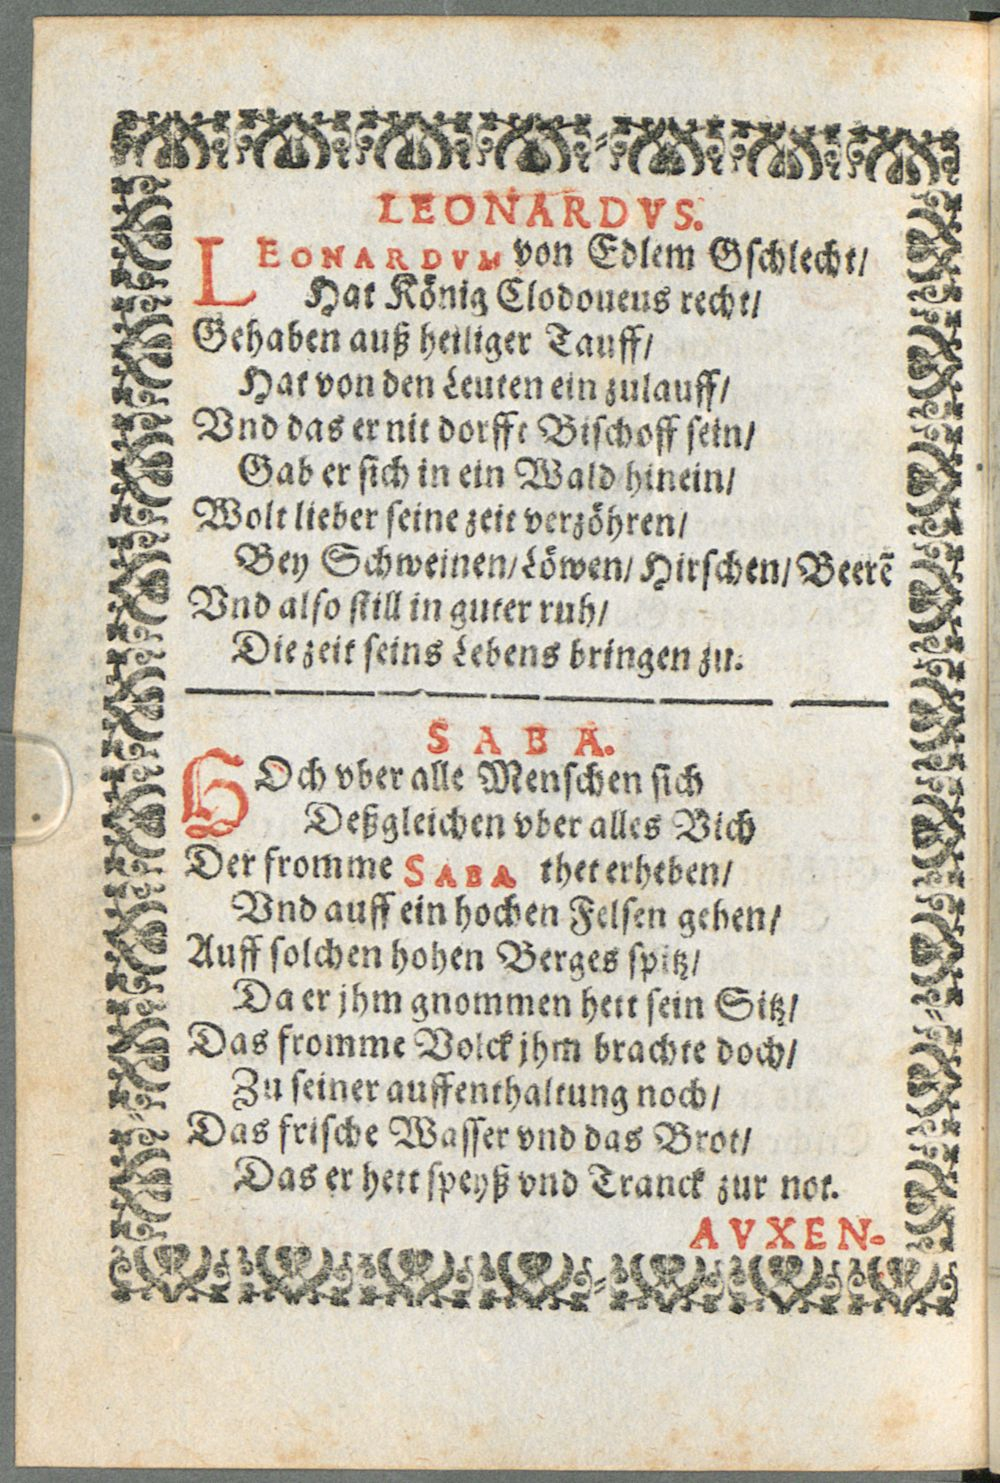 LEONARDVS.
LEONARDVM von Edlem Gschlecht/
Hat König Clodoueus recht/
Gehaben auß heiliger Tauff/
Hat von den Leuten ein zulauff/
Vnd das er nit dorfft Bischoff sein/
Gab er sich in ein Wald hinein/
Wolt lieber seine zeit verzöhren/
Bey Schweinen/ Löwen/ Hirschen/ Beerẽ
Vnd also still in guter ruh/
Die zeit seins Lebens bringen zu.
SABA.
HOch vber alle Menschen sich
Deßgleichen vber alles Vich
Der fromme SABA thet erheben/
Vnd auff ein hochen Felsen geben/
Auff solchen hohen Berges spitz/
Da er jhm gnommen hett sein Sitz/
Das fromme Volck jhm brachte doch/
Zu seiner auffenthaltung noch/
Das frische Wasser vnd das Brot/
Das er hett speyß vnd Tranck zur not.
AVXEN-